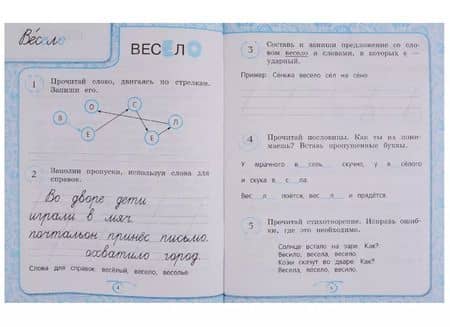 Весело
ВЕСЕЛО
1 Прочитай слово, двигаясь по стрелкам.
Запиши его.
О С
В Л
Е Е
2 Заполни пропуски, используя слова для
справок.
Во дворе дети
играли в мяч.
почтальон принёс письмо.
охватило город.
Слова для справок: весёлый, весело, веселье
4
3 Составь и запиши предложение со сло-
вом весело и словами, в которых е —
ударный.
Пример: Сенька весело сел на сено
4 Прочитай пословицы. Как ты их пони-
маешь? Вставь пропущенные буквы.
У мрачного в сель скучно, у в сёлого
и скука в с ла.
Вес л поётся, вес л и прядётся.
5 Прочитай стихотворение. Исправь ошиб-
ки, где это необходимо.
Солнце встало на заре. Как?
Весило, весела, весело.
Козы скачут во дваре. Как?
Весела, весело, весило.
5